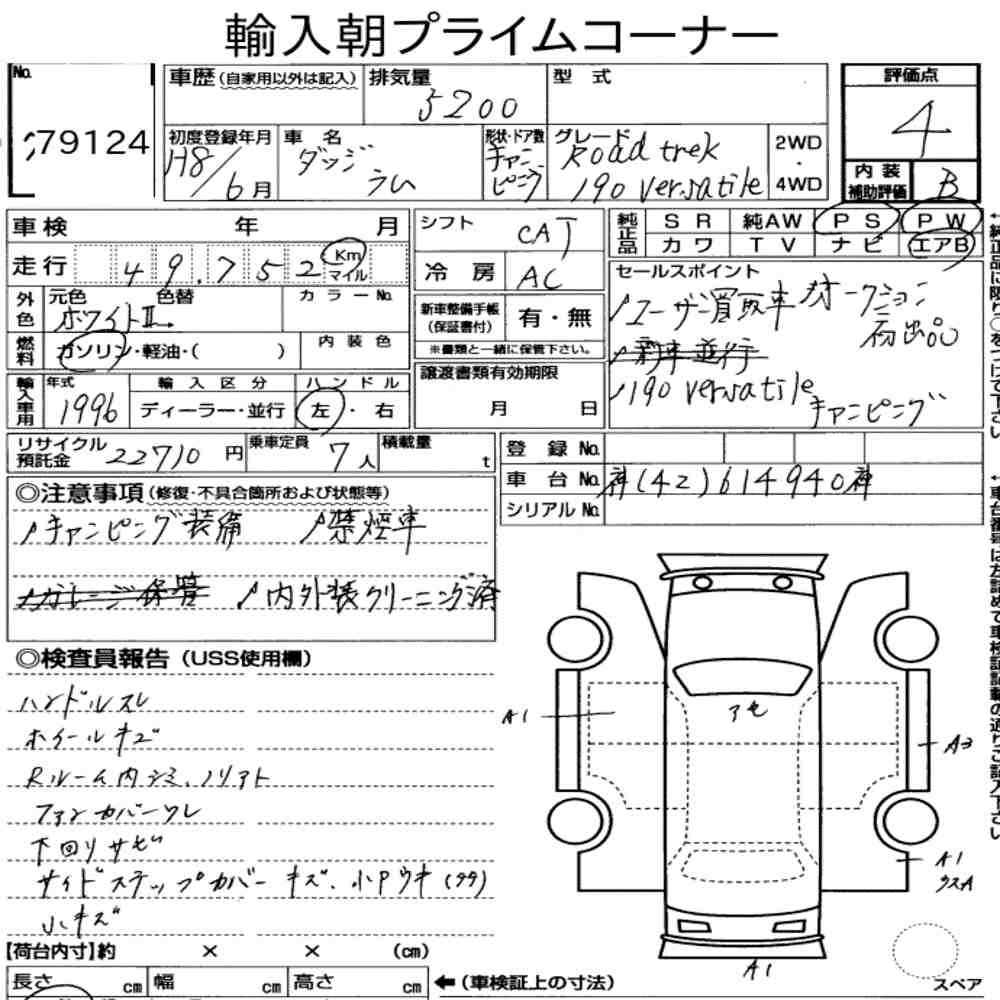 輸入朝プライムコーナー
No.
79124
車歴(自家用以外は記入)
排気量
5200
型 式
評価点
4
初度登録年月
H8/6月
車 名
ダッジ
ラム
形状・ドア数
キャン
ピング
グレード
Road trek
190 versatile
2WD
・
4WD
内 装
補助評価
B
車検 年 月
走行 49.752 Km
マイル
外色
元色 色替
ホワイトII
カラーNo.
燃料
ガソリン・軽油・( )
内 装 色
輸入車用
年式
1996
輸 入 区 分
ディーラー・並行
ハ ン ド ル
左・右
シフト
CAT
冷 房
AC
新車整備手帳
(保証書付)
有・無
※書類と一緒に保管下さい。
譲渡書類有効期限
月 日
純正品
SR 純AW PS PW
カワ TV ナビ エアB
セールスポイント
ユーザー買取車 オークション
初出品
新車並行
190 versatile
キャンピング
←純正品に限り○をつけて下さい
リサイクル
預託金
22710 円
乗車定員
7人
積載量
t
登 録 No.
車 台 No.
神(42)614940神
シリアルNo.
◎注意事項(修復・不具合箇所および状態等)
キャンピング装備
禁煙車
ガレージ保管
内外装クリーニング済
←車台番号は左詰めで車検証記載の通りご記入下さい
◎検査員報告(USS使用欄)
ハンドルスレ
ホイールキズ
Rルーム内シミ、ノリアト
ファンカバーワレ
下回りサビ
サイドステップカバーキズ、小Pウキ(クラ)
小キズ
A1
アセ
A3
A1
クスA
A1
スペア
【荷台内寸】約 × × (cm)
長さ cm 幅 cm 高さ cm
←(車検証上の寸法)